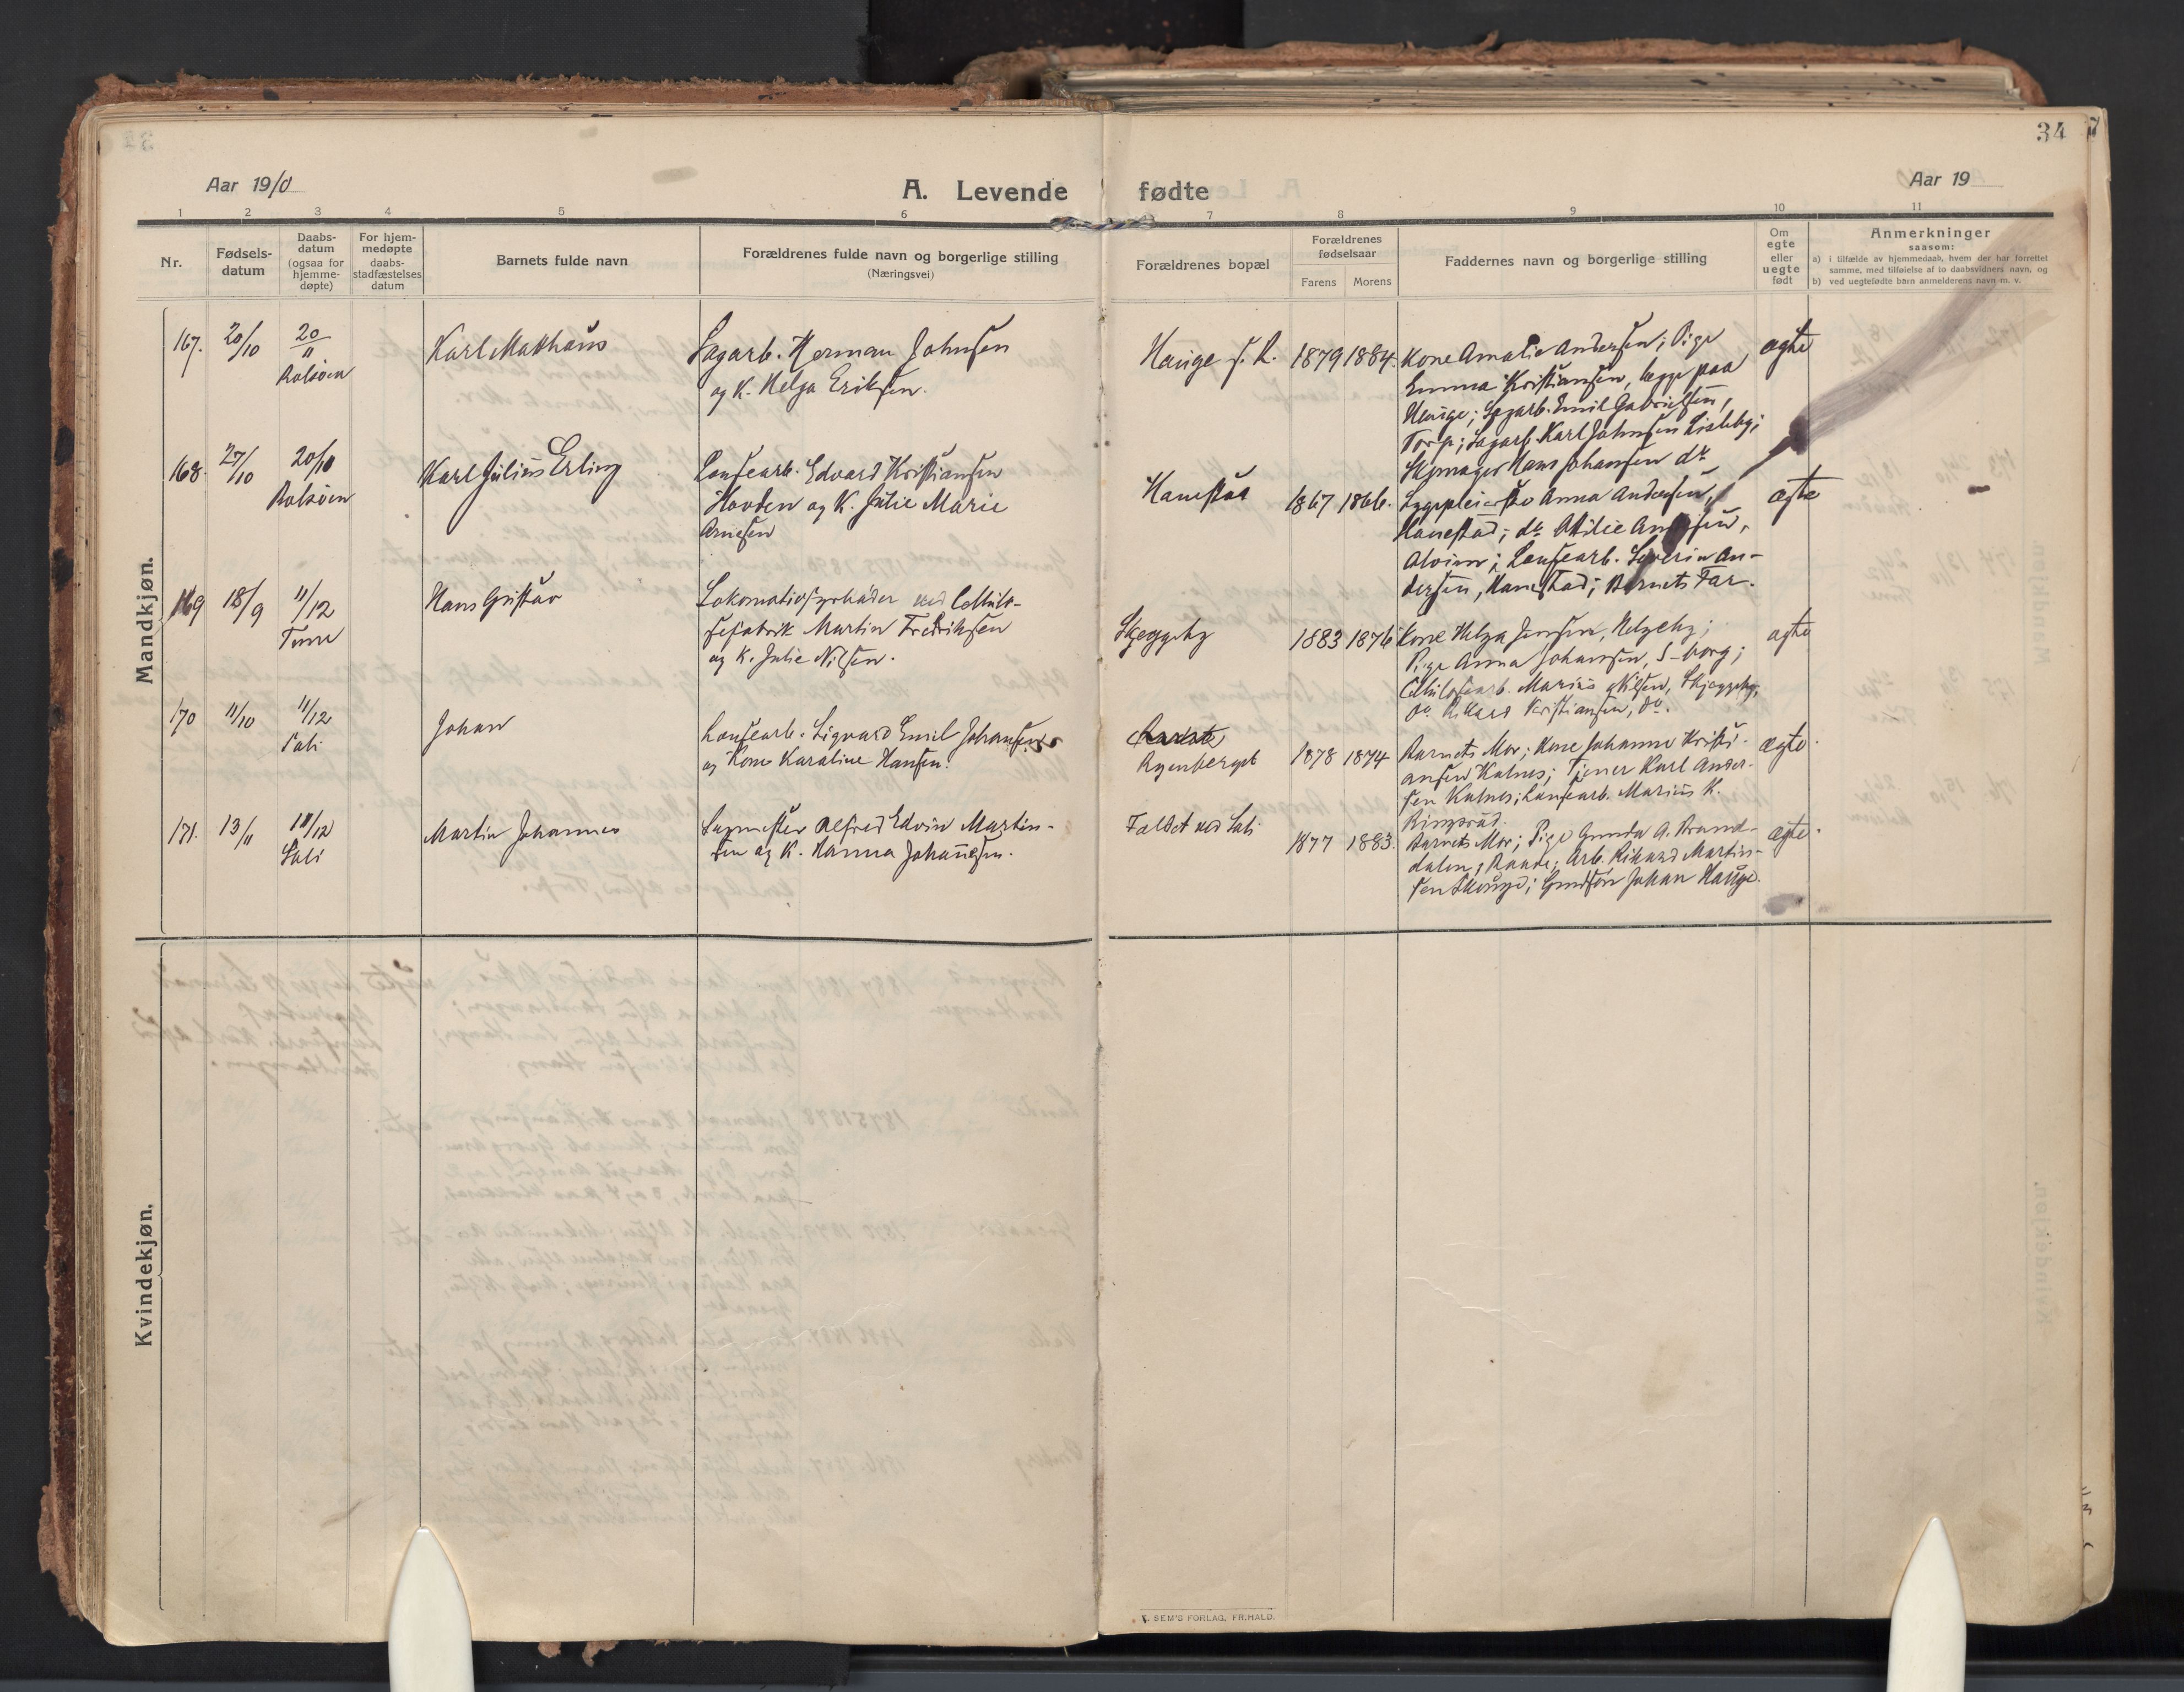 34
Aar 1910
A. Levende fødte
Aar 19
1 2 3 4 5 6 7 8 9 10 11
Nr.
Fødsels-
datum
Daabs-
datum
(ogsaa for
hjemme-
døpte)
For hjem-
medøpte
daabs-
stadfæstelses
datum
Barnets fulde navn
Forældrenes fulde navn og borgerlige stilling
(Næringsvei)
Forældrenes bopæl
Forældrenes
fødselsaar
Farens Morens
Faddernes navn og borgerlige stilling
Om
egte
eller
uegte
født
Anmerkninger
saasom:
a) i tilfælde av hjemmedaab, hvem der har forrettet
samme, med tilføielse af to daabsvidners navn, og
b) ved uegtefødte barn anmelderens navn m. v.
Mandkjøn.
167. 20/10 20/11
Rolsøen
Karl Mathæus
Sagarb. Herman Johnsen
og K. Helga Eriksen.
Hauge f. R.
1879 1884.
Kone Amalie Andersen; Pige
Emma Kristiansen, begge paa
Hauge; Sagarb. Emil Gabrielsen,
Torp; Sagarb. Karl Johnsen Lisleby;
Skomager Hans Johansen do
ægte
168. 27/10 20/11
Rolsøen
Karl Julius Erling
Lensearb. Edvard Kristiansen
Hovden og K. Julie Marie
Arnesen
Hanestad
1867 1866.
Sygepleierske Anna Andersen,
Hanestad; do Otilie Andersen,
Alvim; Lensearb. Severin An-
dersen, Hanestad; Barnets Far.
ægte
169 18/9 11/12
Tune
Hans Gustav
Lokomotivfyrbøder ved Cellulo-
sefabrik Martin Fredriksen
og K. Julie Nilsen.
Skjeggeby
1883 1876
Kone Helga Jensen, Helgeby;
Pige Anna Johansen, S-borg;
Cellulosearb. Marius Nilsen, Skjeggeby,
do Rikard Kristiansen, do.
ægte
170 11/10 11/12
Soli
Johan
Lensearb. Sigvard Emil Johansen
og Kone Karoline Hansen.
1878 1874
Barnets Mor; Kone Johanne Kristi-
ansen Kalnes; Tjener Karl Ander-
sen Kalnes; Lensearb. Marius K.
Ringsrød.
ægte
171. 13/11 11/12
Soli
Martin Johannes
Sagmester Alfred Edvin Martin-
sen og K. Hanna Johannesen.
Faldet ved Soli
1877 1883.
Barnets Mor; Pige Gunda A. Brand-
dalen, Raade; Arb. Rikard Martin-
sen; Grundsøn Johan Hauge.
ægte
Kvindekjøn.
E. SEM'S FORLAG, FR.HALD.